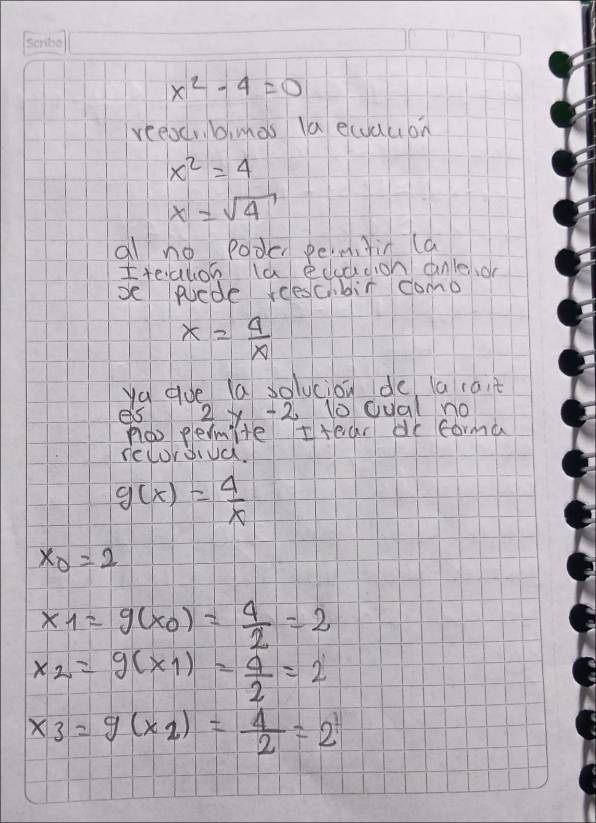 Scribe
x² - 4 = 0
reescribimos la ecuación
x² = 4
x = √4
al no poder permitir la
Iteración la ecuación anterior
se puede reescribir como
x = 4/x
ya que la solución de la raiz
es 2 y -2 lo cual no
nos permite Iterar de forma
recursiva.
g(x) = 4/x
x0 = 2
x1 = g(x0) = 4/2 = 2
x2 = g(x1) = 4/2 = 2
x3 = g(x2) = 4/2 = 2